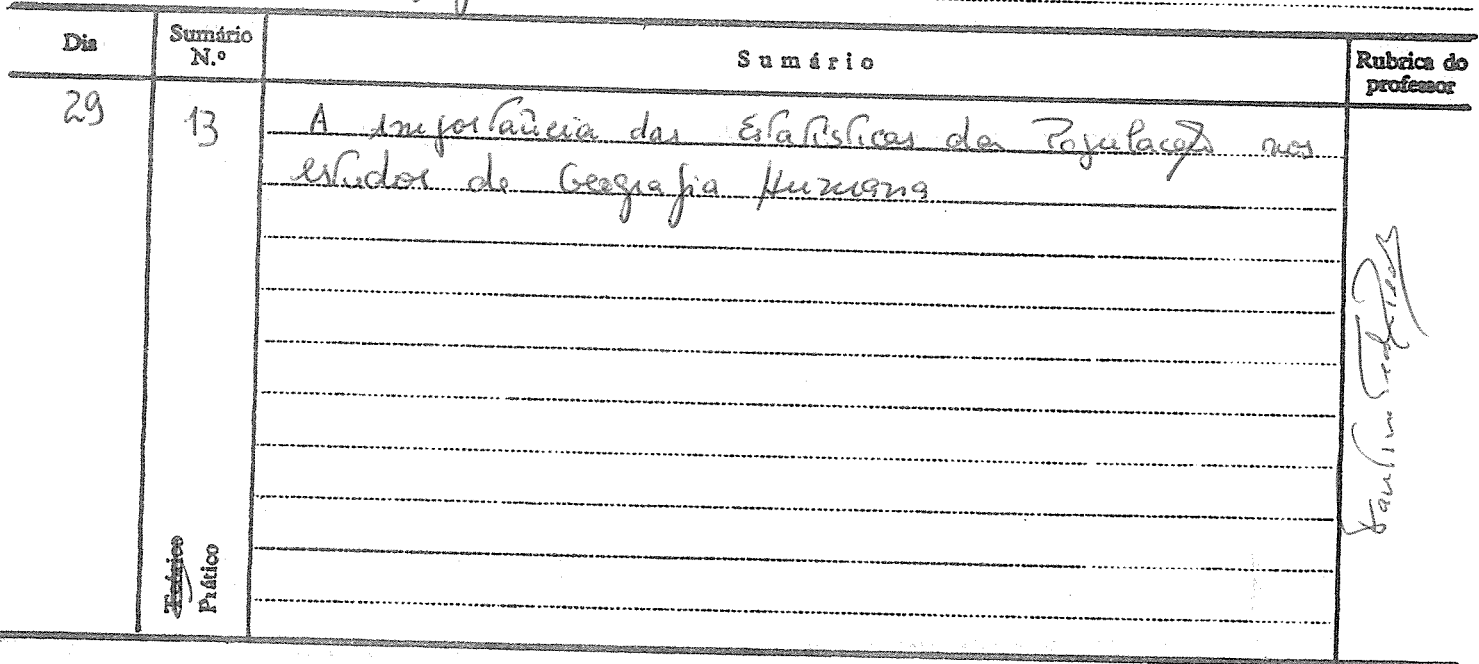 Dia
Sumário N.º
Sumário
Rubrica do professor
29
13
A importância das Estatísticas da População nos
estudos de Geografia Humana
Teórico
Prático